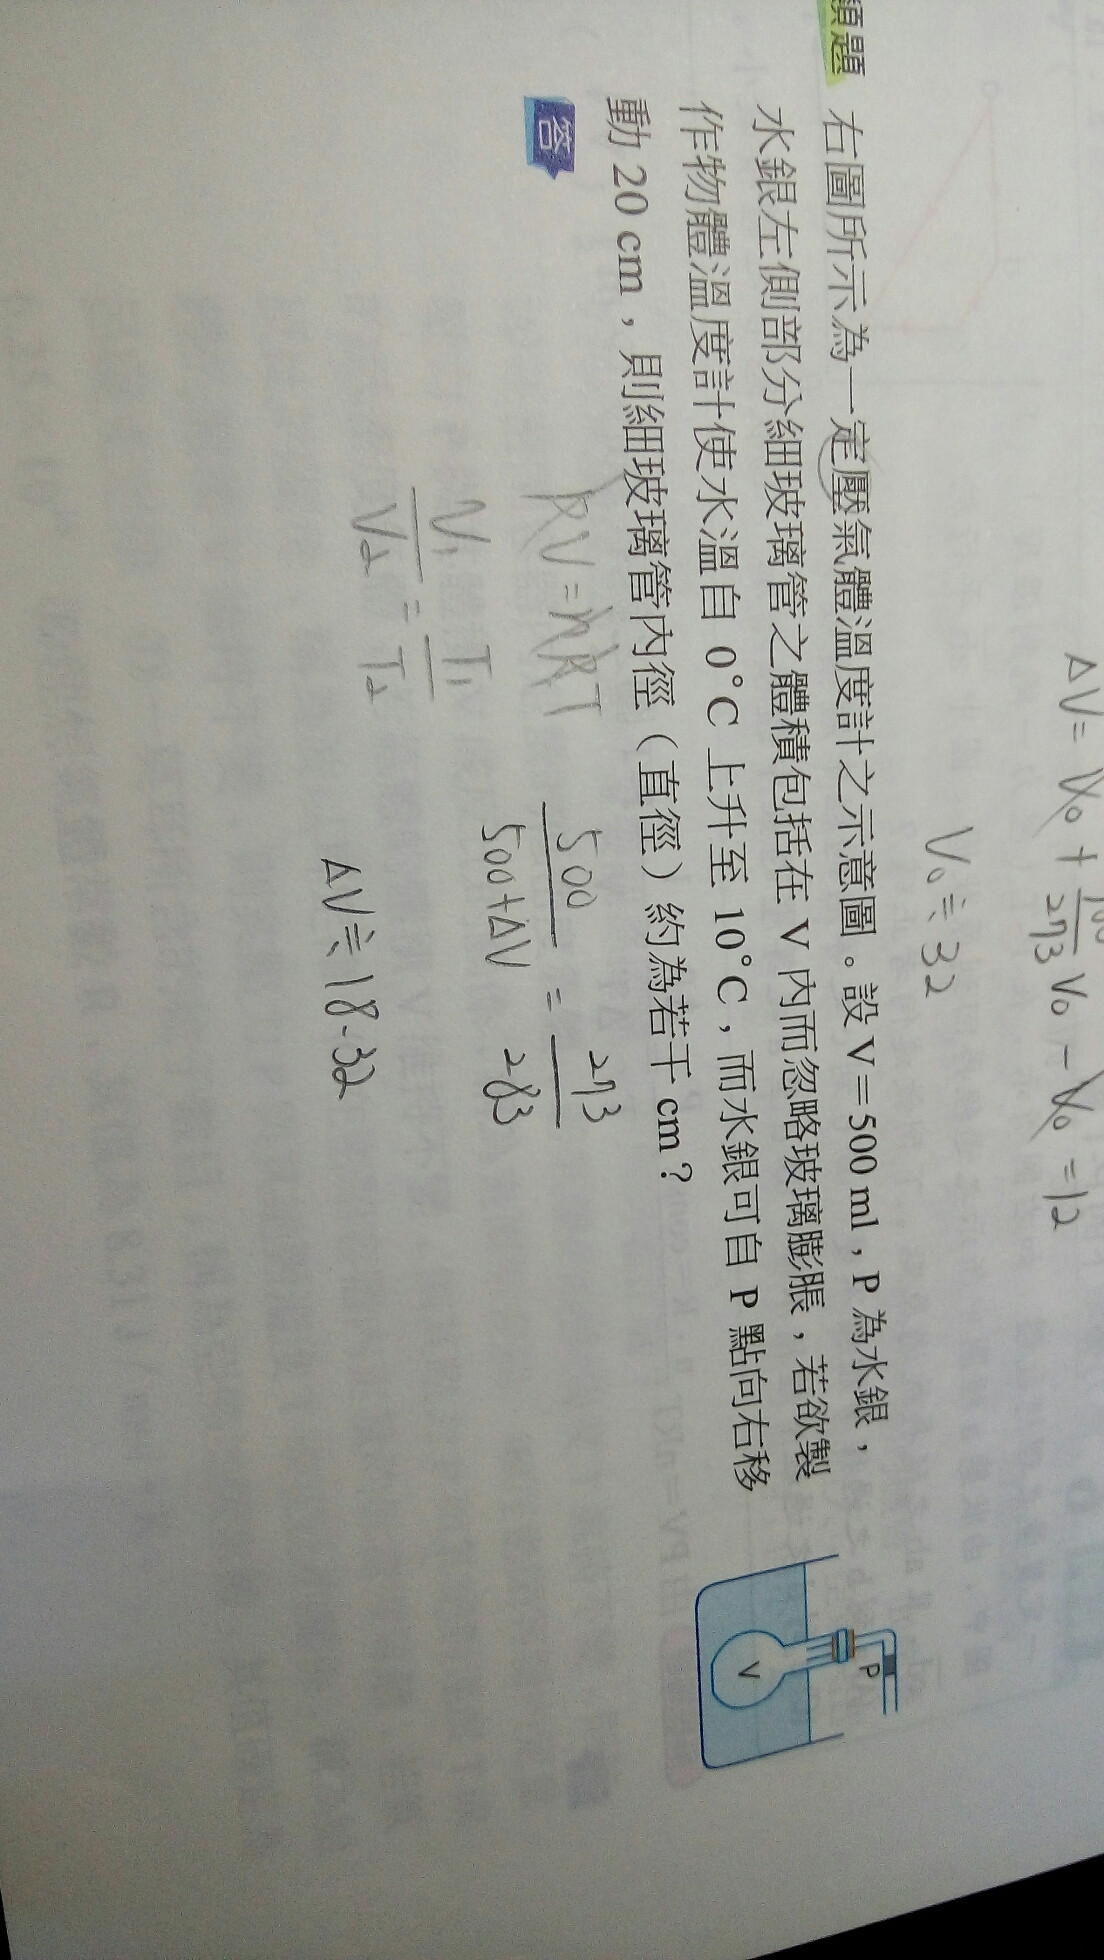 ΔV = V₀ + 100/273 V₀ - V₀ = 12
V₀ ≒ 32
類題 右圖所示為一定壓氣體溫度計之示意圖。設 V = 500 ml，P 為水銀，
水銀左側部分細玻璃管之體積包括在 V 內而忽略玻璃膨脹，若欲製
作物體溫度計使水溫自 0°C 上升至 10°C，而水銀可自 P 點向右移
動 20 cm，則細玻璃管內徑（直徑）約為若干 cm？
答
P
V
PV = nRT
V₁/V₂ = T₁/T₂
500/500+ΔV = 273/283
ΔV ≒ 18.32